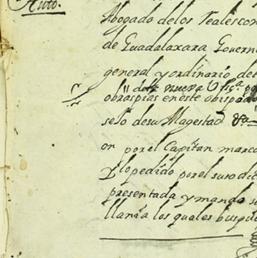 Auto.
Abogado delos Reales con
de Guadalaxara Govern
general y ordinario de
dela nueva
obraspias en este obispado
selo de su Magestad &a
on por el Capitan marco
Y lo pedido por el suso dic
presentada y mando se
llania los quales